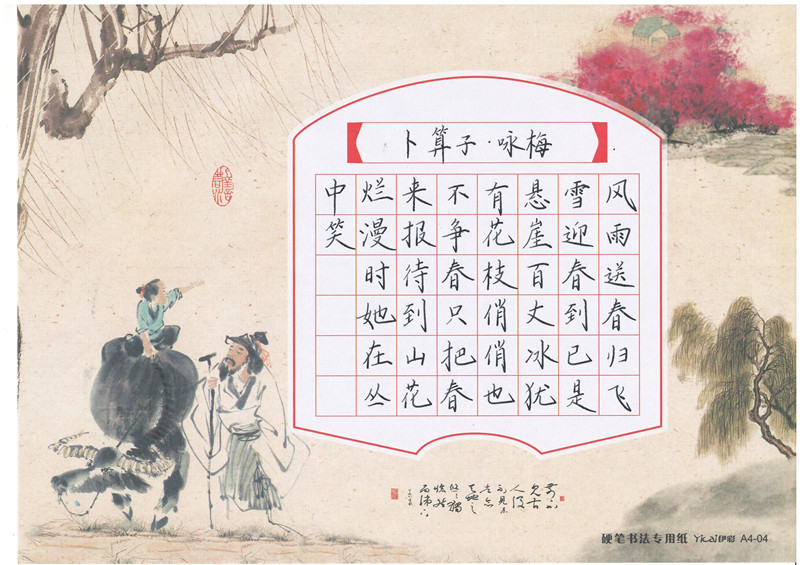 卜算子·咏梅
风雨送春归飞
雪迎春到已是
悬崖百丈冰犹
有花枝俏俏也
不争春只把春
来报待到山花
烂漫时她在丛
中笑
硬笔书法专用纸 Yicai伊彩 A4-04